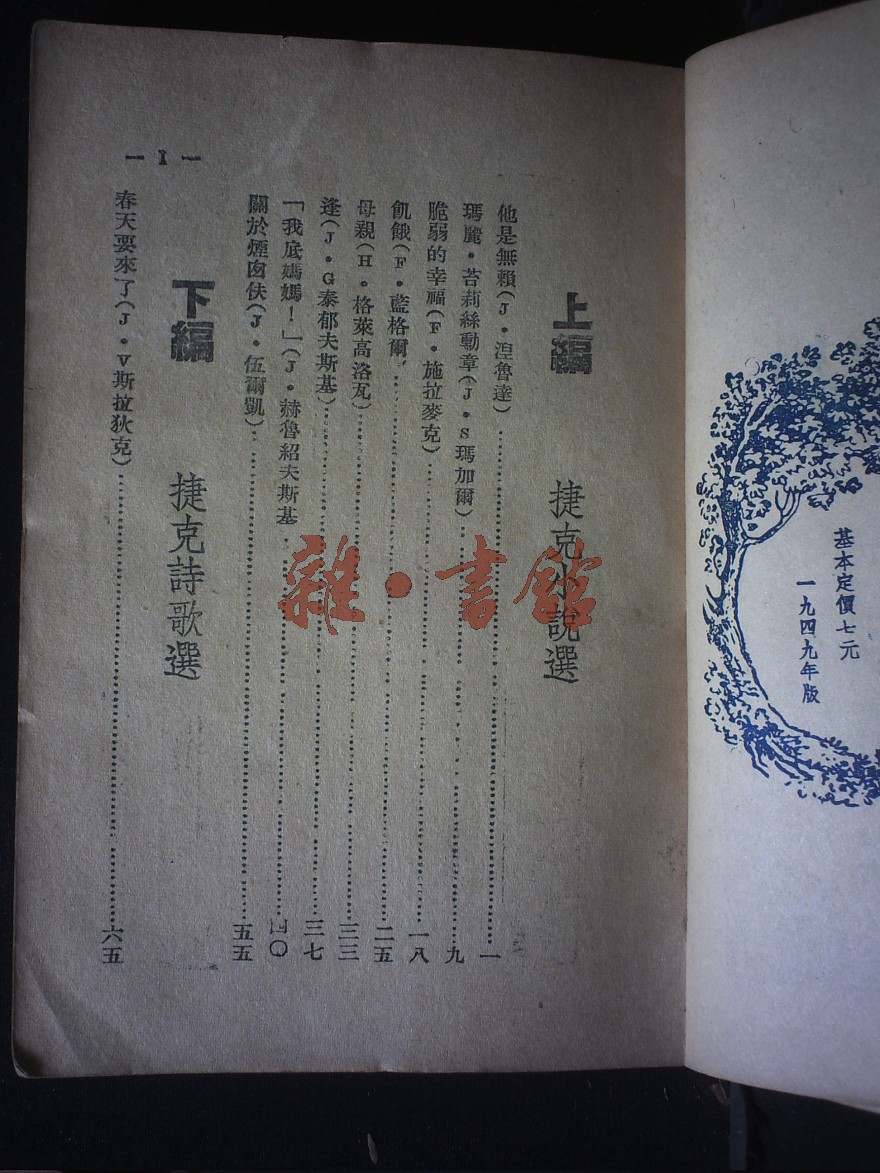 基本定價七元
一九四九年版
上編 捷克小說選
他是無賴(J·湼魯達)……一
瑪麗·苔莉絲勳章(J·S瑪加爾)……九
脆弱的幸福(F·施拉麥克)……一八
飢餓(F·藍格爾)……二五
母親(H·格萊高洛瓦)……三三
逢(J·G泰郁夫斯基)……三七
「我底媽媽!」(J·赫魯紹夫斯基……四〇
關於煙囪伕(J·伍爾凱)……五五
下編 捷克詩歌選
春天要來了(J·V斯拉狄克)……六五
— 1 —
雜·書館